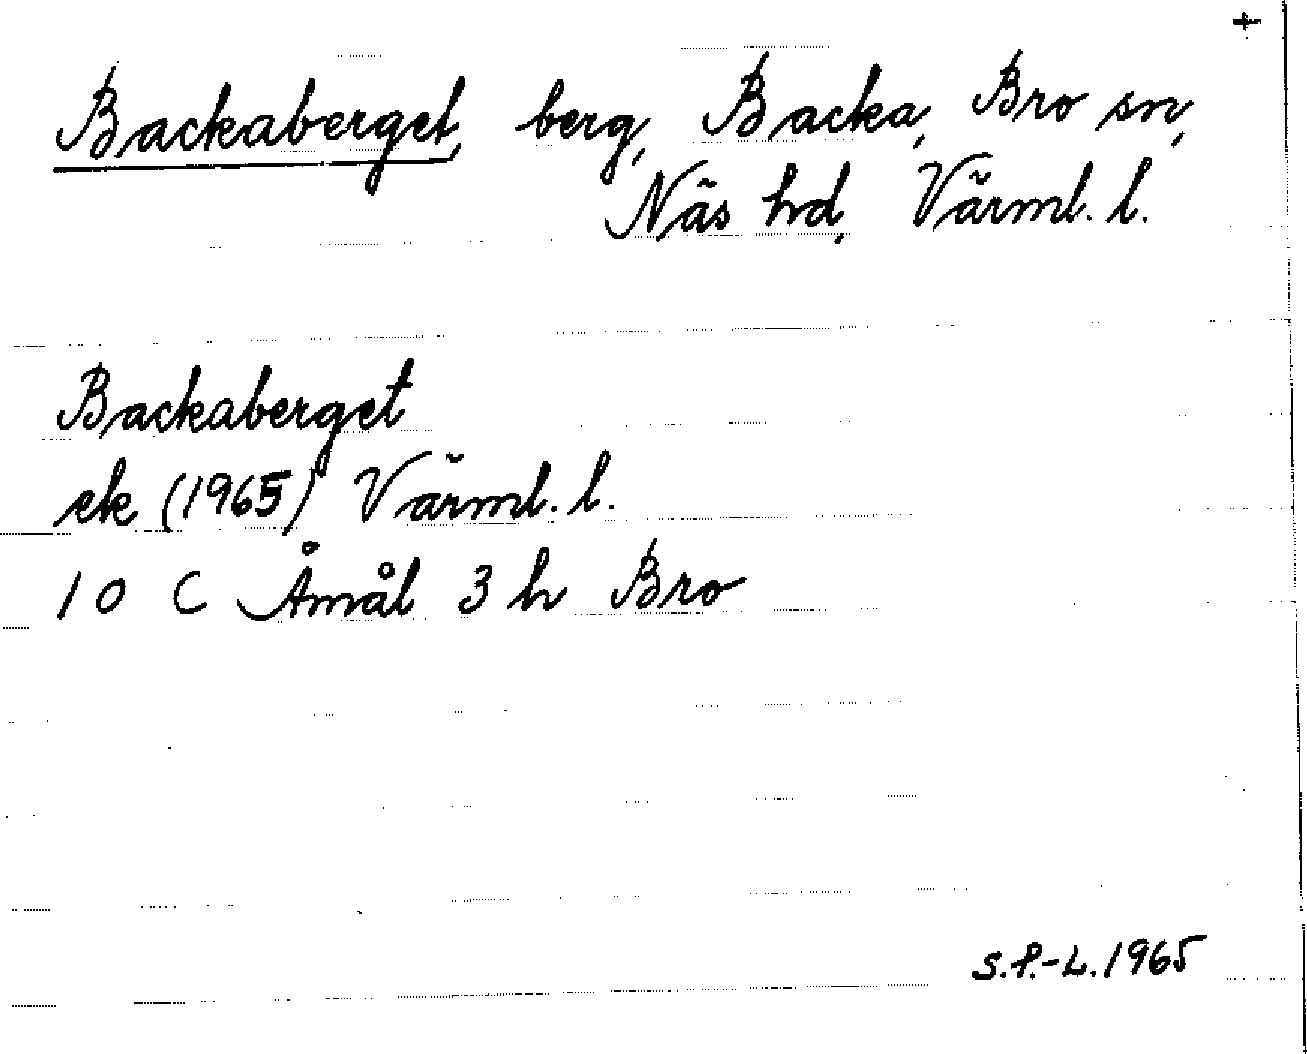 +
Backaberget, berg, Backa, Bro sn,
Näs hd, Värml. l.
Backaberget
ek (1965) Värml. l.
10 C Åmål 3 h Bro
S.P.-L. 1965